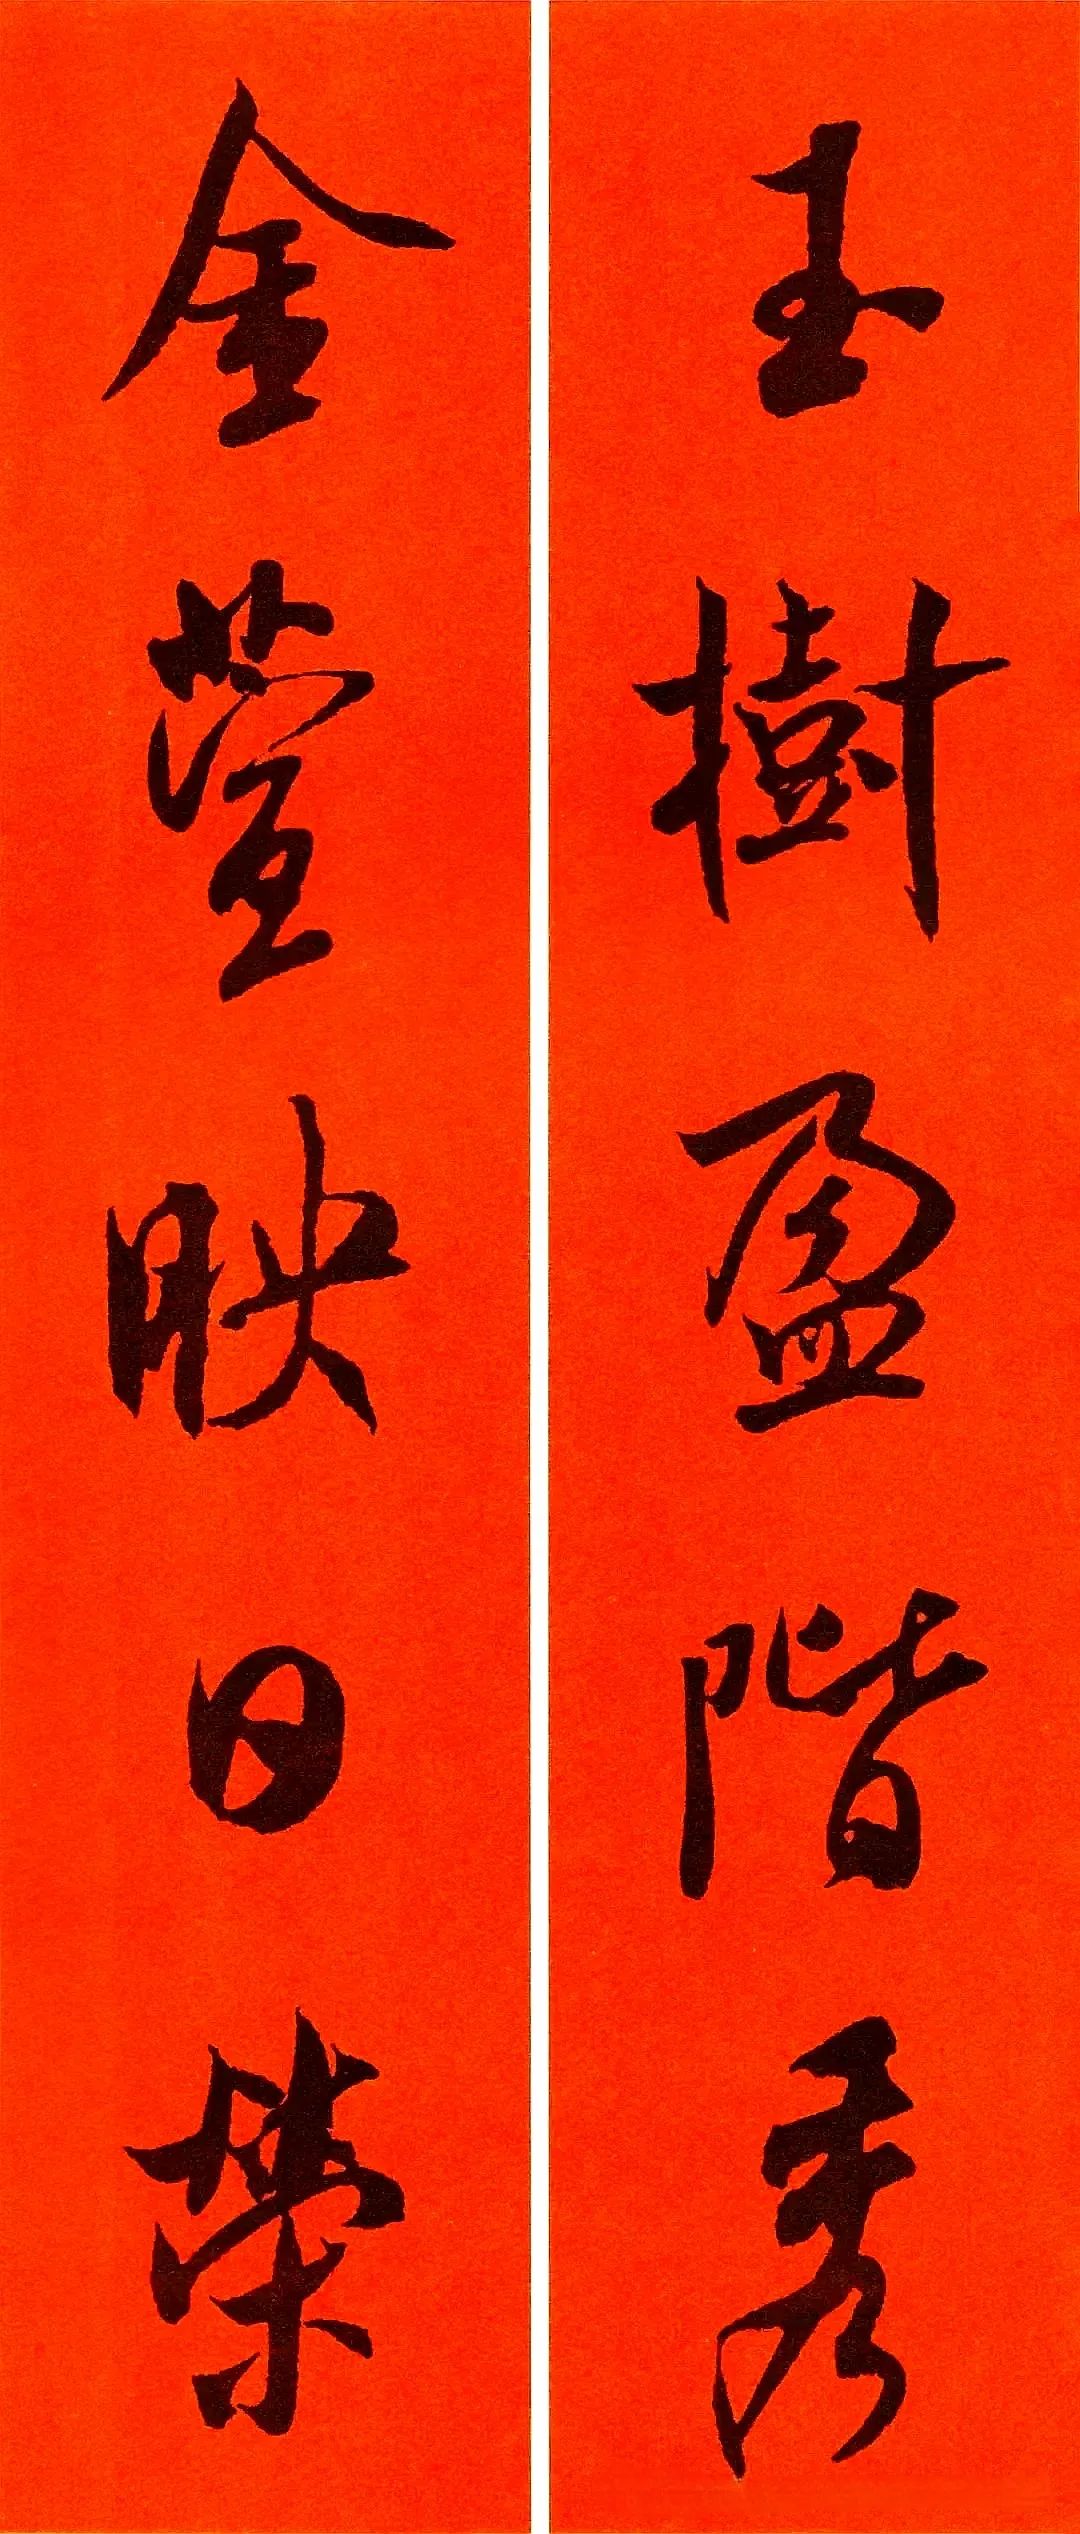 玉樹盈階秀
金萱映日榮